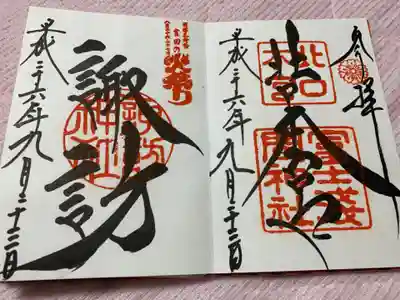 奉拝
北口本宮
北口
本宮
冨士浅
間神社
平成二十六年九月二十三日
吉田の
火祭り
諏訪
諏訪
神社
平成二十六年九月二十三日